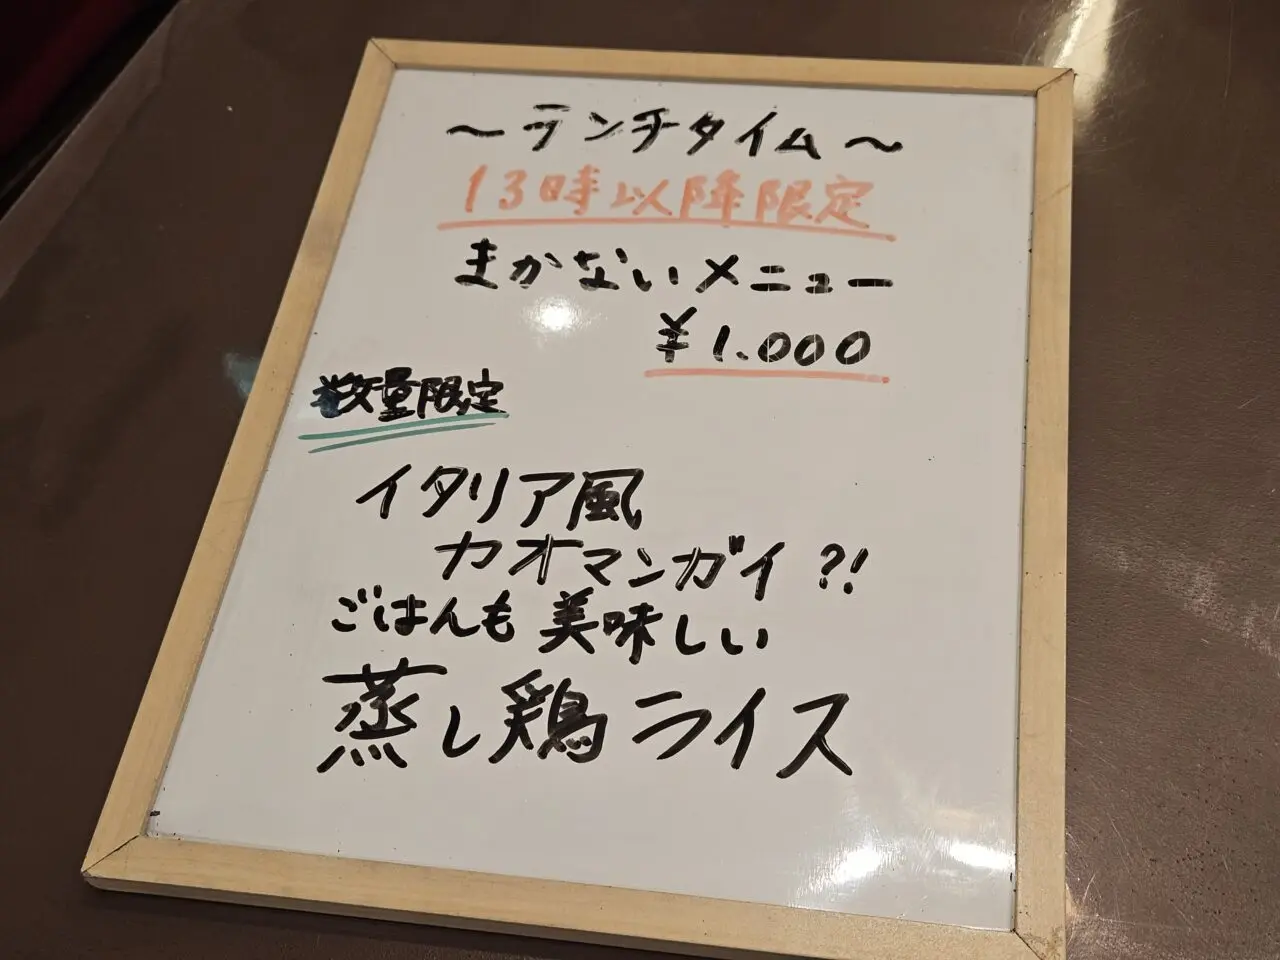 ～ランチタイム～
13時以降限定
まかないメニュー
¥1.000
数量限定
イタリア風
カオマンガイ?!
ごはんも美味しい
蒸し鶏ライス